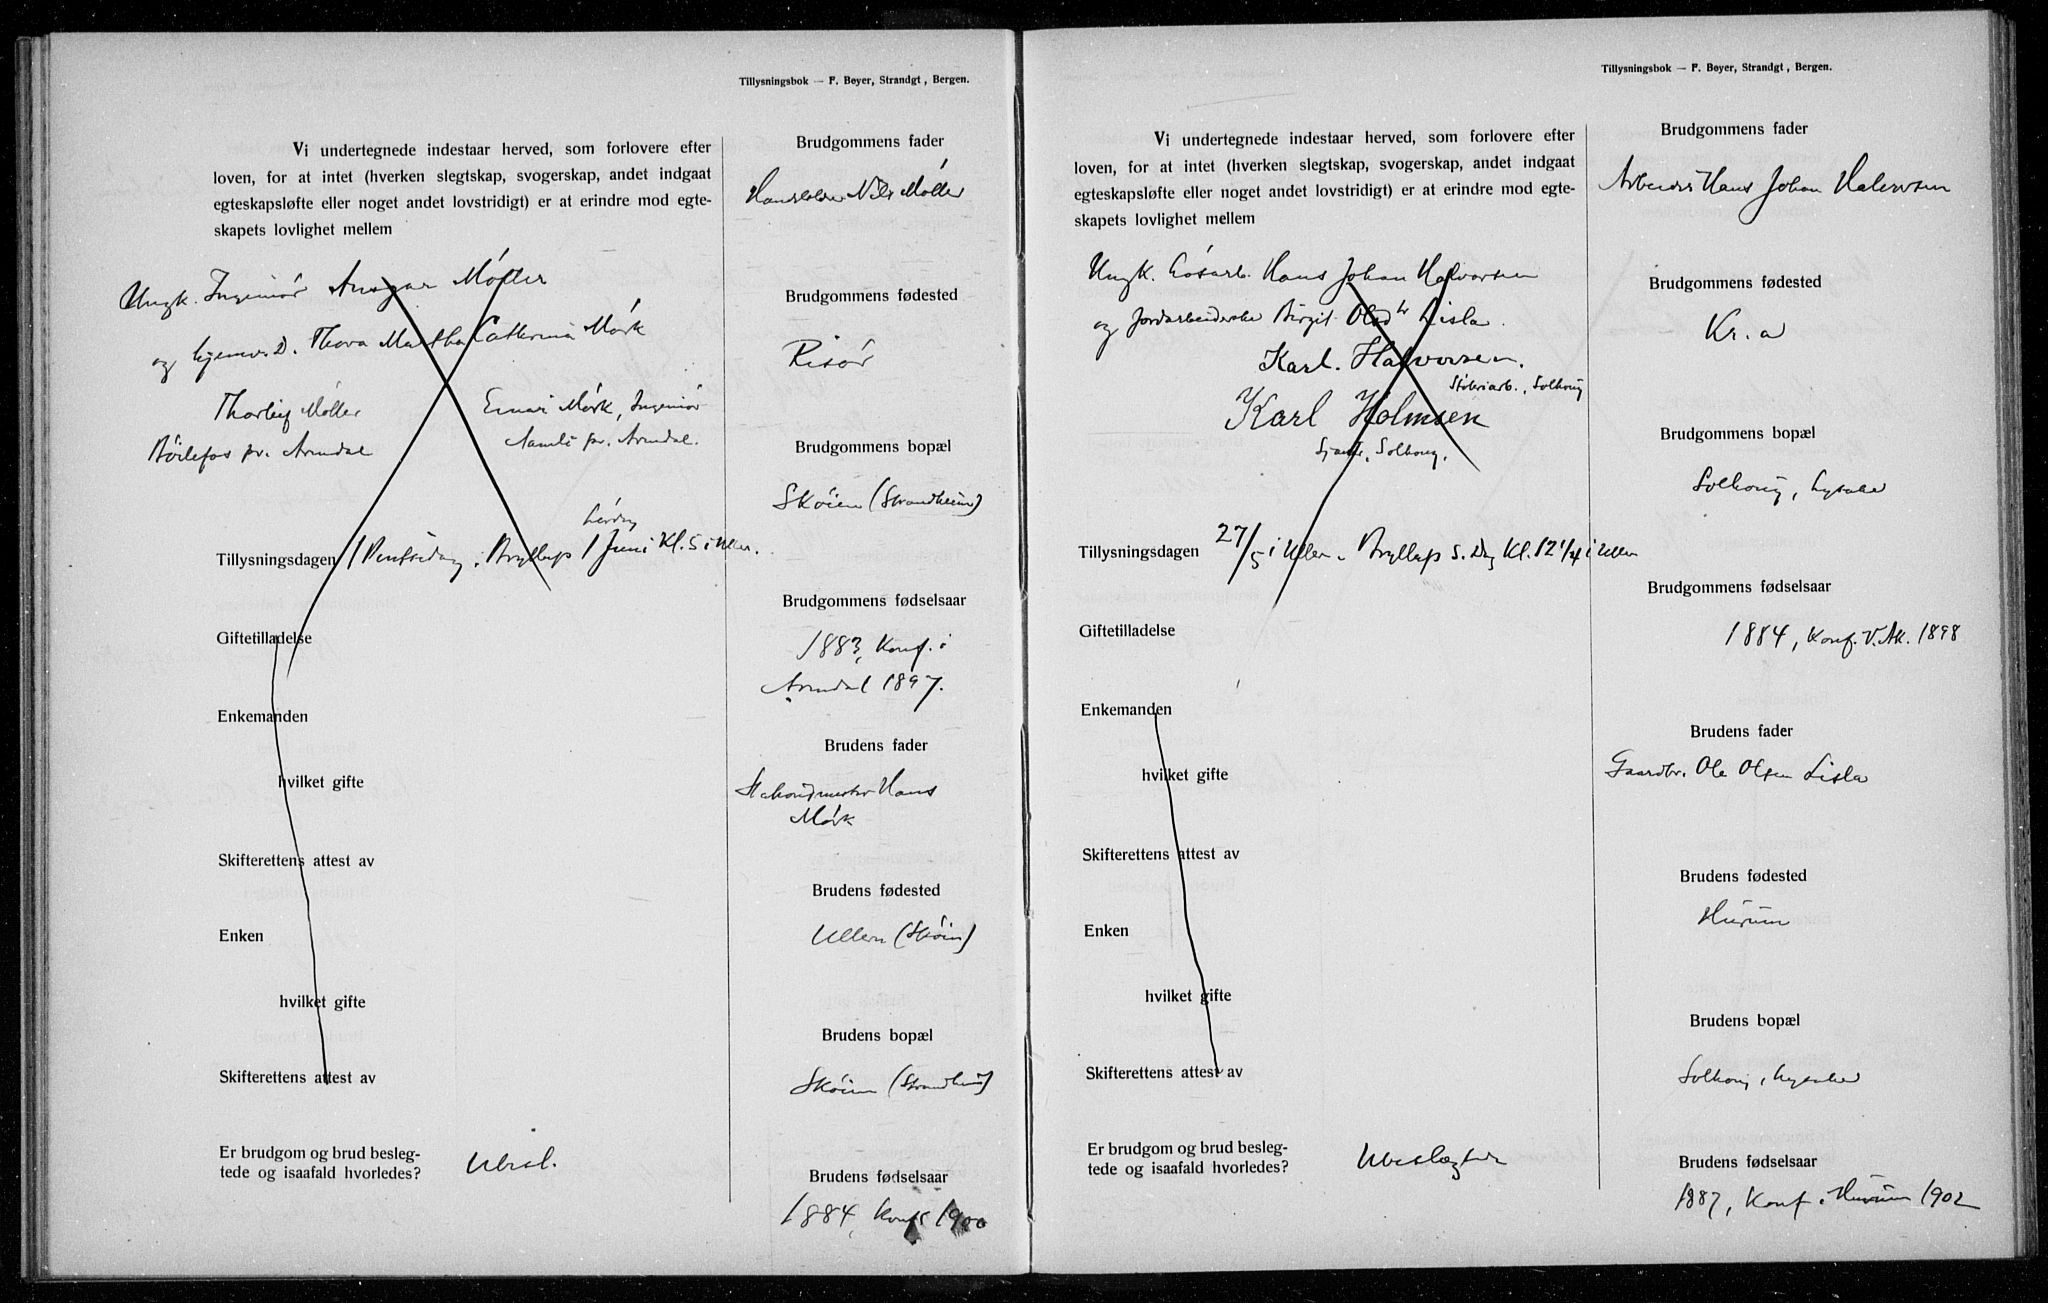 Tillysningsbok — F. Beyer, Strandgt, Bergen.
Vi undertegnede indestaar herved, som forlovere efter
loven, for at intet (hverken slegtskap, svogerskap, andet indgaat
egteskapsløfte eller noget andet lovstridigt) er at erindre mod egte-
skapets lovlighet mellem
Ungk. Ingeniør Ansgar Møller
og hjemv. D. Thora Martha Cathrina Mørk
Thorleif Møller
Bøilefos pr. Arendal
Einar Mørk, Ingeniør
Aamli pr. Arendal.
Lørdag
Tillysningsdagen 1 Pentsedag. Bryllup 1 Juni Kl. 5 i Ullern.
Giftetilladelse
Enkemanden
hvilket gifte
Skifterettens attest av
Enken
hvilket gifte
Skifterettens attest av
Er brudgom og brud besleg-
tede og isaafald hvorledes? Ubesl.
Brudgommens fader
Nils Møller
Brudgommens fødested
Risør
Brudgommens bopæl
Skøien (Strandheim)
Brudgommens fødselsaar
1883, Konf. i
Arendal 1897.
Brudens fader
Stationsmester Hans
Mørk
Brudens fødested
Ullern (Skøien)
Brudens bopæl
Skøien (Strandheim)
Brudens fødselsaar
1884, Konf. 1900
Tillysningsbok — F. Beyer, Strandgt, Bergen.
Vi undertegnede indestaar herved, som forlovere efter
loven, for at intet (hverken slegtskap, svogerskap, andet indgaat
egteskapsløfte eller noget andet lovstridigt) er at erindre mod egte-
skapets lovlighet mellem
Ungk. Løsarb. Hans Johan Halvorsen
og Jordarbeiderske Birgit Olsdtr Lisla.
Karl. Halvorsen.
Støberiarb., Solhoug
Karl Holmsen
Solhoug.
Tillysningsdagen 27/5 i Ullern. Bryllup s. Dag Kl. 12 1/4 i Ullern
Giftetilladelse
Enkemanden
hvilket gifte
Skifterettens attest av
Enken
hvilket gifte
Skifterettens attest av
Er brudgom og brud besleg-
tede og isaafald hvorledes? Ubeslægtede
Brudgommens fader
Arbeider Hans Johan Halvorsen
Brudgommens fødested
Kr.a
Brudgommens bopæl
Solhoug, Lysaker
Brudgommens fødselsaar
1884, Konf. V. Ak. 1898
Brudens fader
Gaardbr. Ole Olsen Lisla
Brudens fødested
Hurum
Brudens bopæl
Solhoug, Lysaker
Brudens fødselsaar
1887, Konf. i Hurum 1902